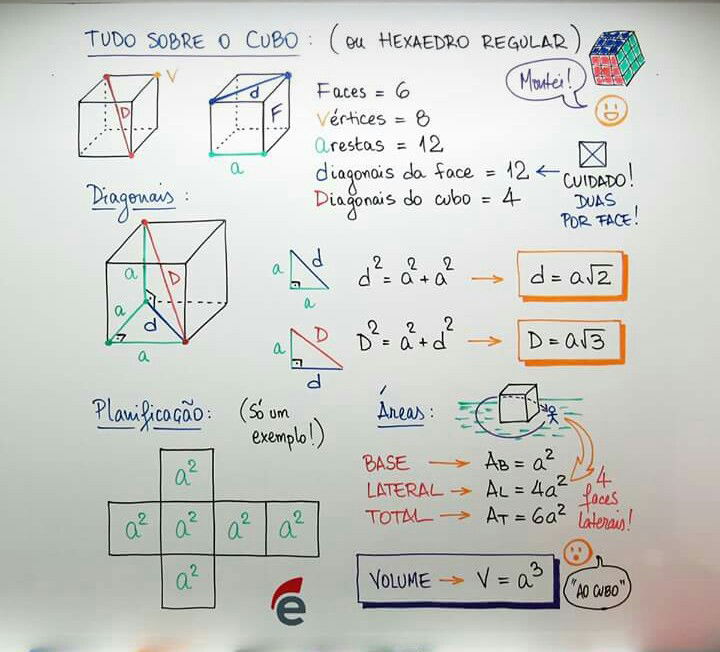 TUDO SOBRE O CUBO: (OU HEXAEDRO REGULAR)
Montei!
V
D
d
F
a
Faces = 6
Vértices = 8
arestas = 12
diagonais da face = 12 ←
Diagonais do cubo = 4
CUIDADO!
DUAS
POR FACE!
Diagonais:
a
D
a
d
a
a d
a
d² = a² + a² → d = a√2
a D
d
D² = a² + d² → D = a√3
Planificação: (Só um
exemplo!)
a²
a² a² a² a²
a²
Áreas:
BASE → AB = a²
LATERAL → AL = 4a²
TOTAL → AT = 6a²
4
faces
laterais!
VOLUME → V = a³
"AO CUBO"
e